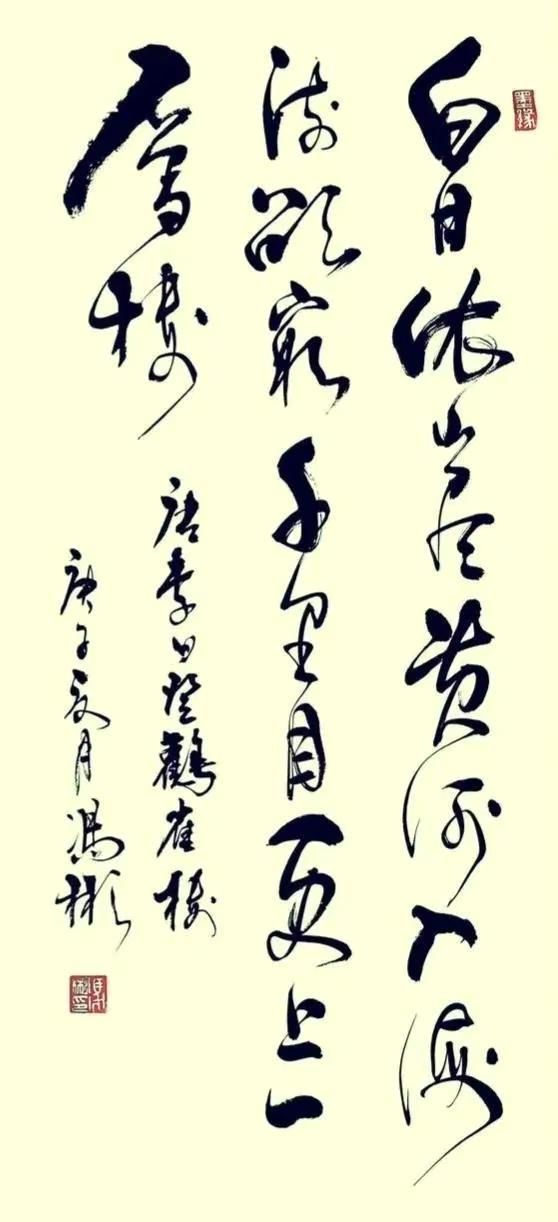 墨缘
白日依山尽黄河入海
流欲窮千里目更上一
層樓
唐李白登鸛雀樓
庚子夏月馮彬